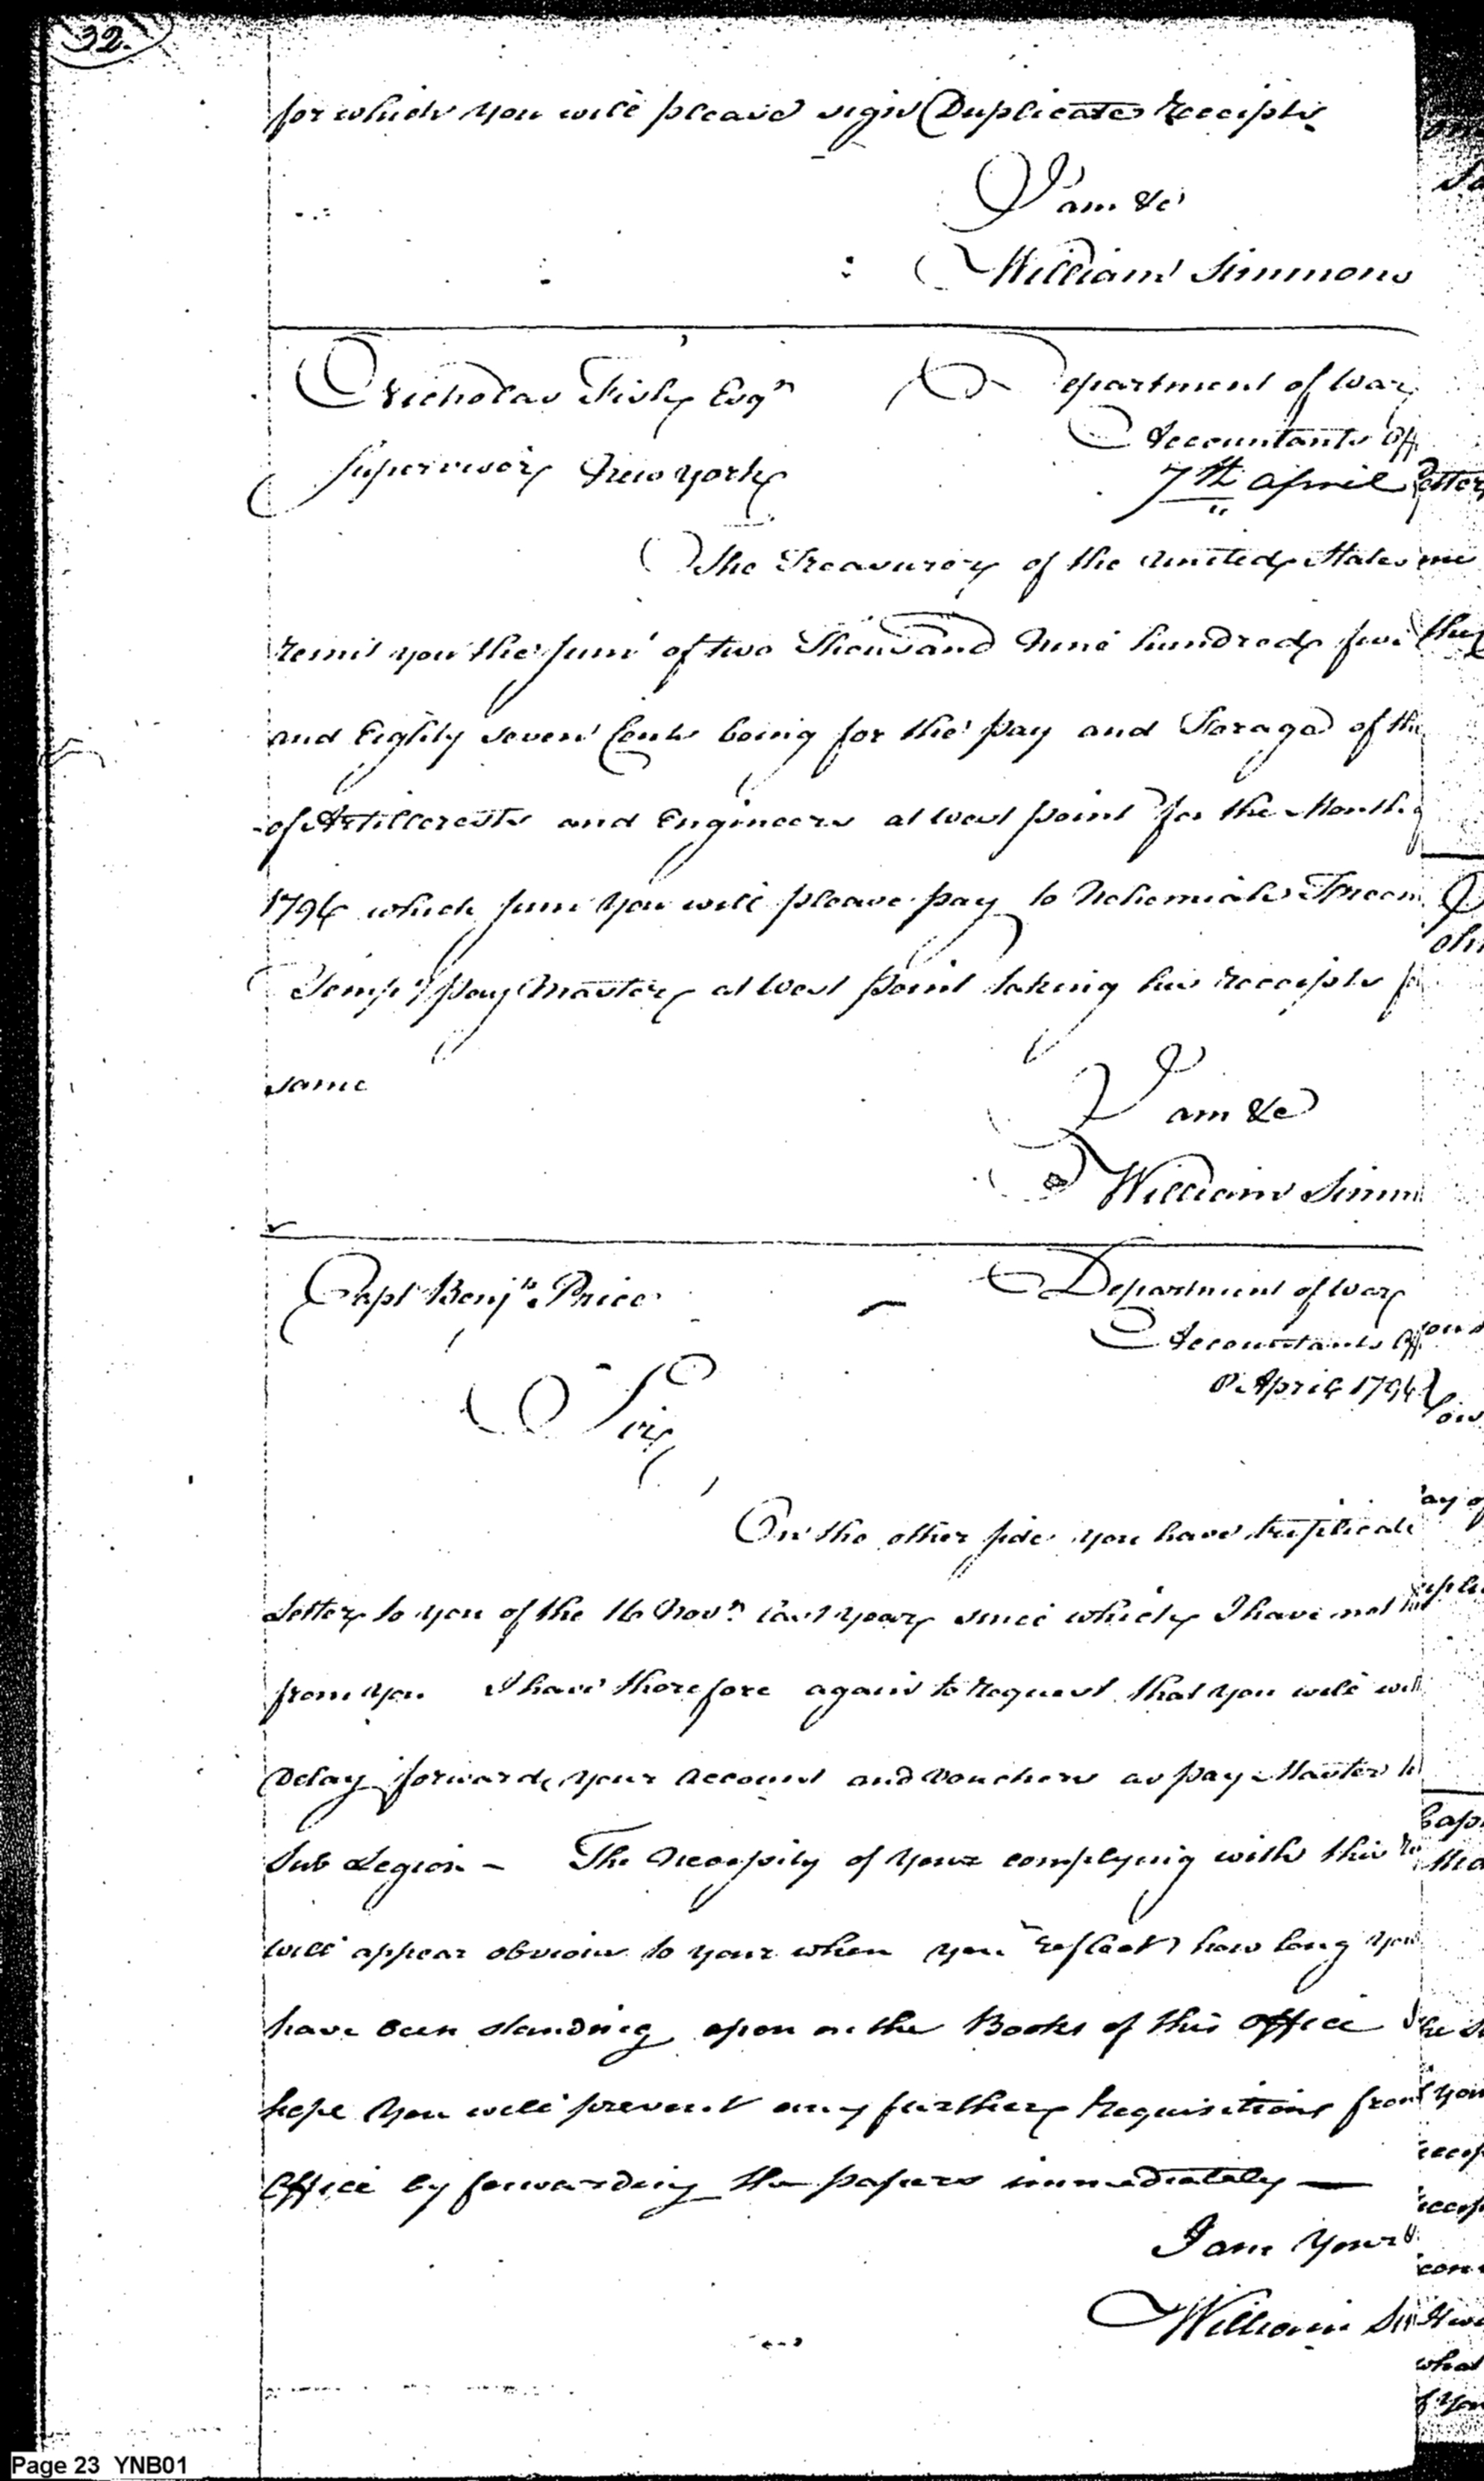 32.
for which you will please sign Duplicate Receipts
I am &c
William Simmons
Nicholas Fish Esqr
Department of War
Accountants Off
Supervisor New York
7th April
The Treasurer of the United States
remit you the sum of two Thousand Nine hundred five
and Eighty seven Cents being for the pay and Forage of the
of Artillerests and Engineers at West point for the Month
1796 which sum you will please pay to Nehemiah Freem
Temp'y pay Master at West point taking his receipts fo
same
I am &c
William Simm
Capt Benjn. Price
Department of War
Accountants Off
8 April 1796
Sir
On the other side you have triplicate
Letter to you of the 16 Novr. last year since which I have not
from you I have therefore again to request that you will with
Delay forward your account and vouchers as pay Master to
Sub Legion - The Necessity of your complying with this
will appear obvious to your when you reflect how long you
have been standing upon on the Books of this office
hope you will prevent any further Requisitions from
Office by forwarding the papers immediately —
I am Your
William Si
Page 23 YNB01